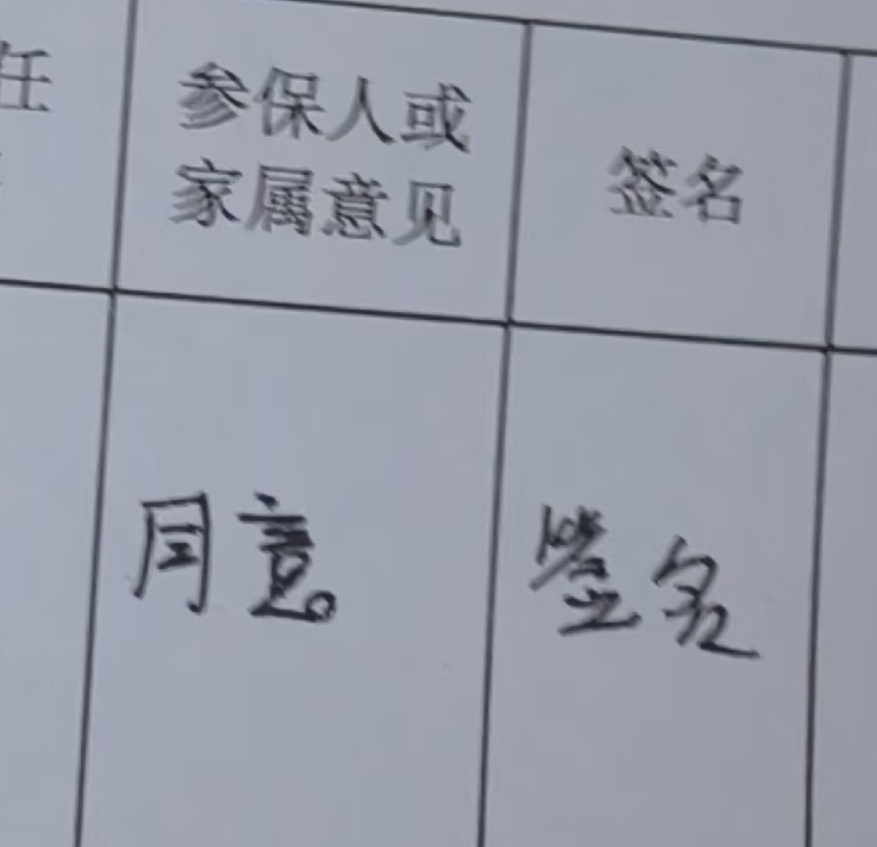 任
参保人或
家属意见
签名
同意。
签名